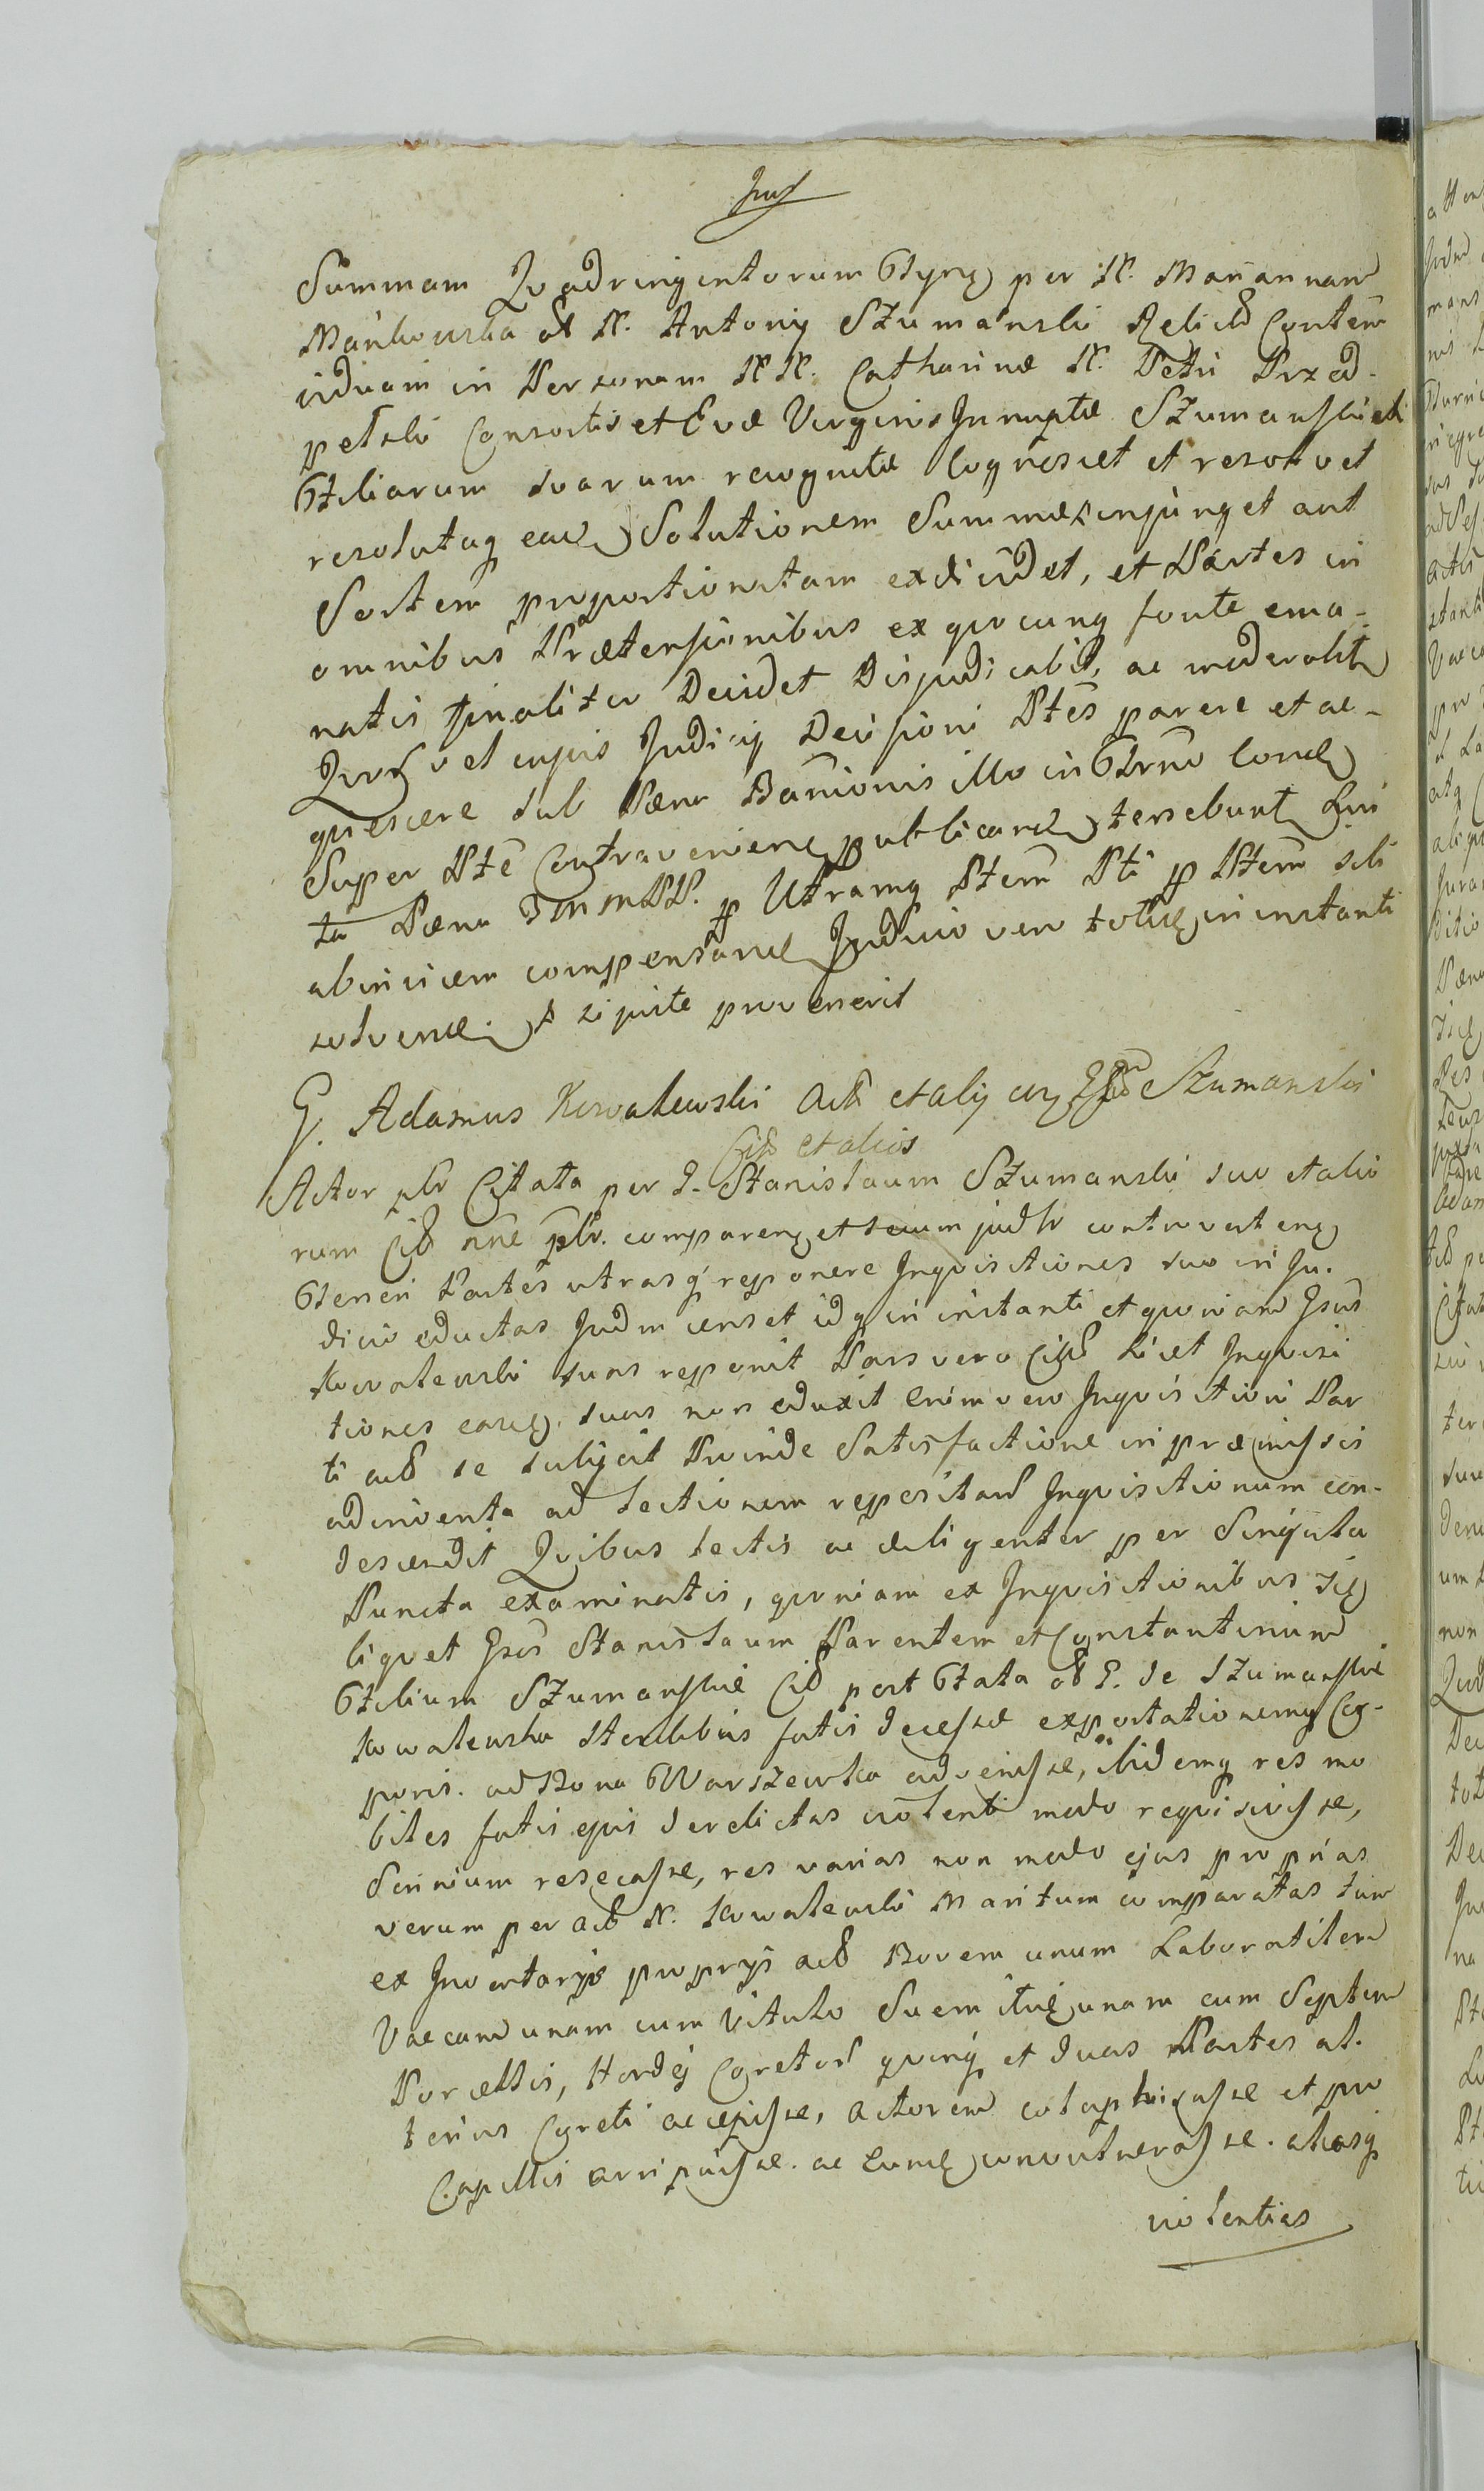 Summam Quadringentorum flynq per N. Mariannam
Mańkowska olim N. Antonij Szumański Relictā Contem
viduam in Personam NN. Catharinæ N. Petri Przed-
pełski Consortis et Evæ Virginis Innuptæ Szumanskich
Filiarum suarum recognitæ cognoscet et resolvet
resolutaq eadē Solutionem Summæ injunget aut
Sortem proportionatam exdividet, et Partes in
omnibus Prætensionibus ex quocunq fonte ema-
natis finaliter Decidet Disjudicabit, ac moderabit
Quor vel cujus Judicij Decisioni Ptes parere et ac-
quiescere sub Pæna Bannionis illico in Frno conde
Super Pte Contravenienē publicand tenebunt Luri
ta Pæna 3 m mPP. p Utramq Ptem Pti p Ptem sibi
abinvicem compensand Judicio vero totidē in instanti
solvend. si juste provenerit
G. Adamus Kowalewski Act et alij cum Gso Szumanski
Cit et alios
Actor plr Citata per G. Stanislaum Szumanski suo et alio
rum Cit nne plr. comparenq et secum judlr controvertenq
Generi Partes utrasq reponere Inquisitiones suo in Ju-
dicio eductas Judm censet idq in instanti et quoniam Gsus
Kowalewski suas reponit Pars vero Citta licet Inquisi
tiones easdē. suas non eduxit enimvero Inquisitioni Par
ti act se subjecit Proinde Satisfactione in præmissis
adinventa ad lectionem repositarū Inquisitionum con-
descendit Quibus lectis ac diligenter per Singula
Puncta examinatis, quoniam ex Inquisitionibus iisdē
liquet Gsos Stanislaum Parentem et Constantinum
Filium Szumanskie Cit post Fata olim G. de Szumanskie
Kowalewska Sterilibus fatis decessæ exportationemq Cor-
poris. ad Bona Warszewka advenisse, ibidemq res mo
biles fatis ejus derelictas violenti modo requisivisse,
Scrinium resecasse, res varias non modo ejus proprias
verum per act N. Kowalewski Maritum comparatas tum
ex Inventarijs proprijs act Bovem unum Laboratilem
Vaccam unam cum Vitulo Suem itidē unam cum Septem
Porcellis, Hordej Coretos quinq et duas Partes al-
terius Coreti accepisse, actorem colaphisasse et pro
Capillis arripuisse. ac Eundē convulnerasse. aliasq
violentias